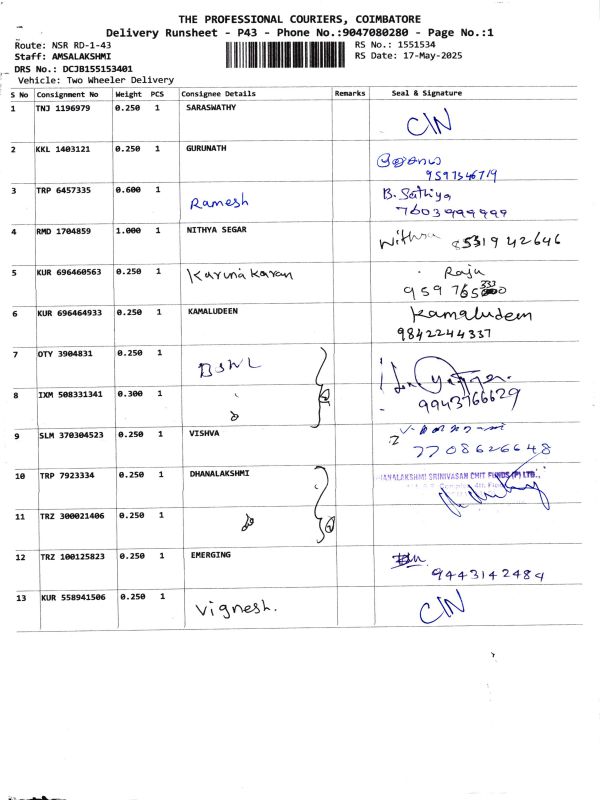 THE PROFESSIONAL COURIERS, COIMBATORE
Delivery Runsheet - P43 - Phone No.:9047080280 - Page No.:1
Route: NSR RD-1-43 RS No.: 1551534
Staff: AMSALAKSHMI RS Date: 17-May-2025
DRS No.: DCJB155153401
Vehicle: Two Wheeler Delivery
S No Consignment No Weight PCS Consignee Details Remarks Seal & Signature
1 TNJ 1196979 0.250 1 SARASWATHY CIN
2 KKL 1403121 0.250 1 GURUNATH
9597546719
3 TRP 6457335 0.600 1 Ramesh B. Sathiya
7603999999
4 RMD 1704859 1.000 1 NITHYA SEGAR Nithya 8531942646
5 KUR 696460563 0.250 1 Karunakaran Raju
959765
6 KUR 696464933 0.250 1 KAMALUDEEN Kamaludeen
9842244337
7 OTY 3904831 0.250 1 BSNL
8 IXM 508331341 0.300 1 9943766629
9 SLM 370304523 0.250 1 VISHVA
7708626648
10 TRP 7923334 0.250 1 DHANALAKSHMI HANALAKSHMI SRINIVASAN CHIT FUNDS (P) LTD.,
11 TRZ 300021406 0.250 1
12 TRZ 100125823 0.250 1 EMERGING
9443142484
13 KUR 558941506 0.250 1 Vignesh. CIN